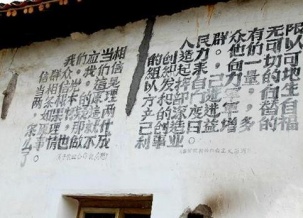 人民群众有无限
的创造力。他们可以
组织起来,向一切可
以发挥自己力量的地
方和部门进军,向生
产的深度和广度进军,替自
己创造日益增多的福
利事业。
我们应当相信
群众,我们应当相信
党,这是
两条根本的原理
。如果怀疑这两
条原理,那就什么
事情也做不成了。